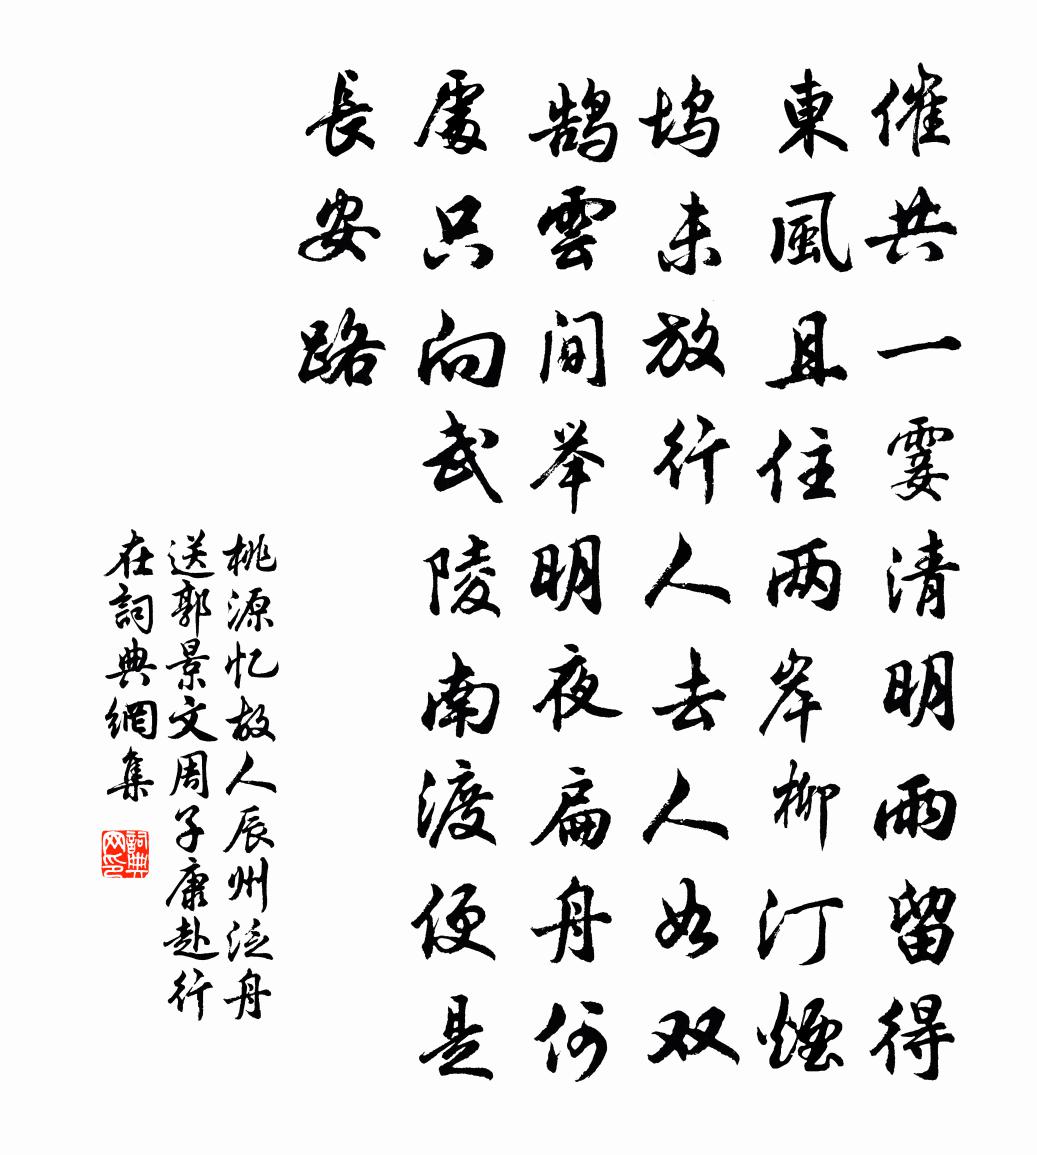 催共一霎清明雨留得
東風且住两岸柳汀煙
坞未放行人去人如双
鹄雲间举明夜扁舟何
處只向武陵南渡便是
長安路
桃源忆故人辰州泛舟
送郭景文周子康赴行
在詞典網集
詞典
网印